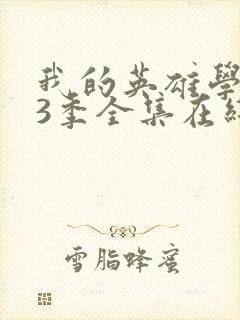 我的英雄學
3季全集在
雪脂蜂蜜